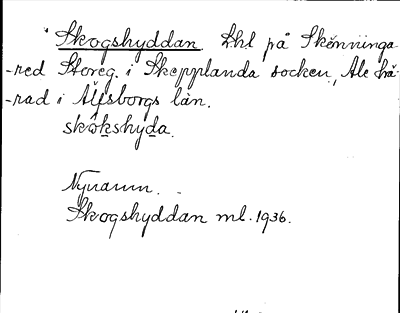 Skogshyddan Lht på Skönninga-
-red Storeg. i Skepplanda socken, Ale hä-
-rad i Älfsborgs län.
skô̱kshyda.
Nynamn.
Skogshyddan ml. 1936.